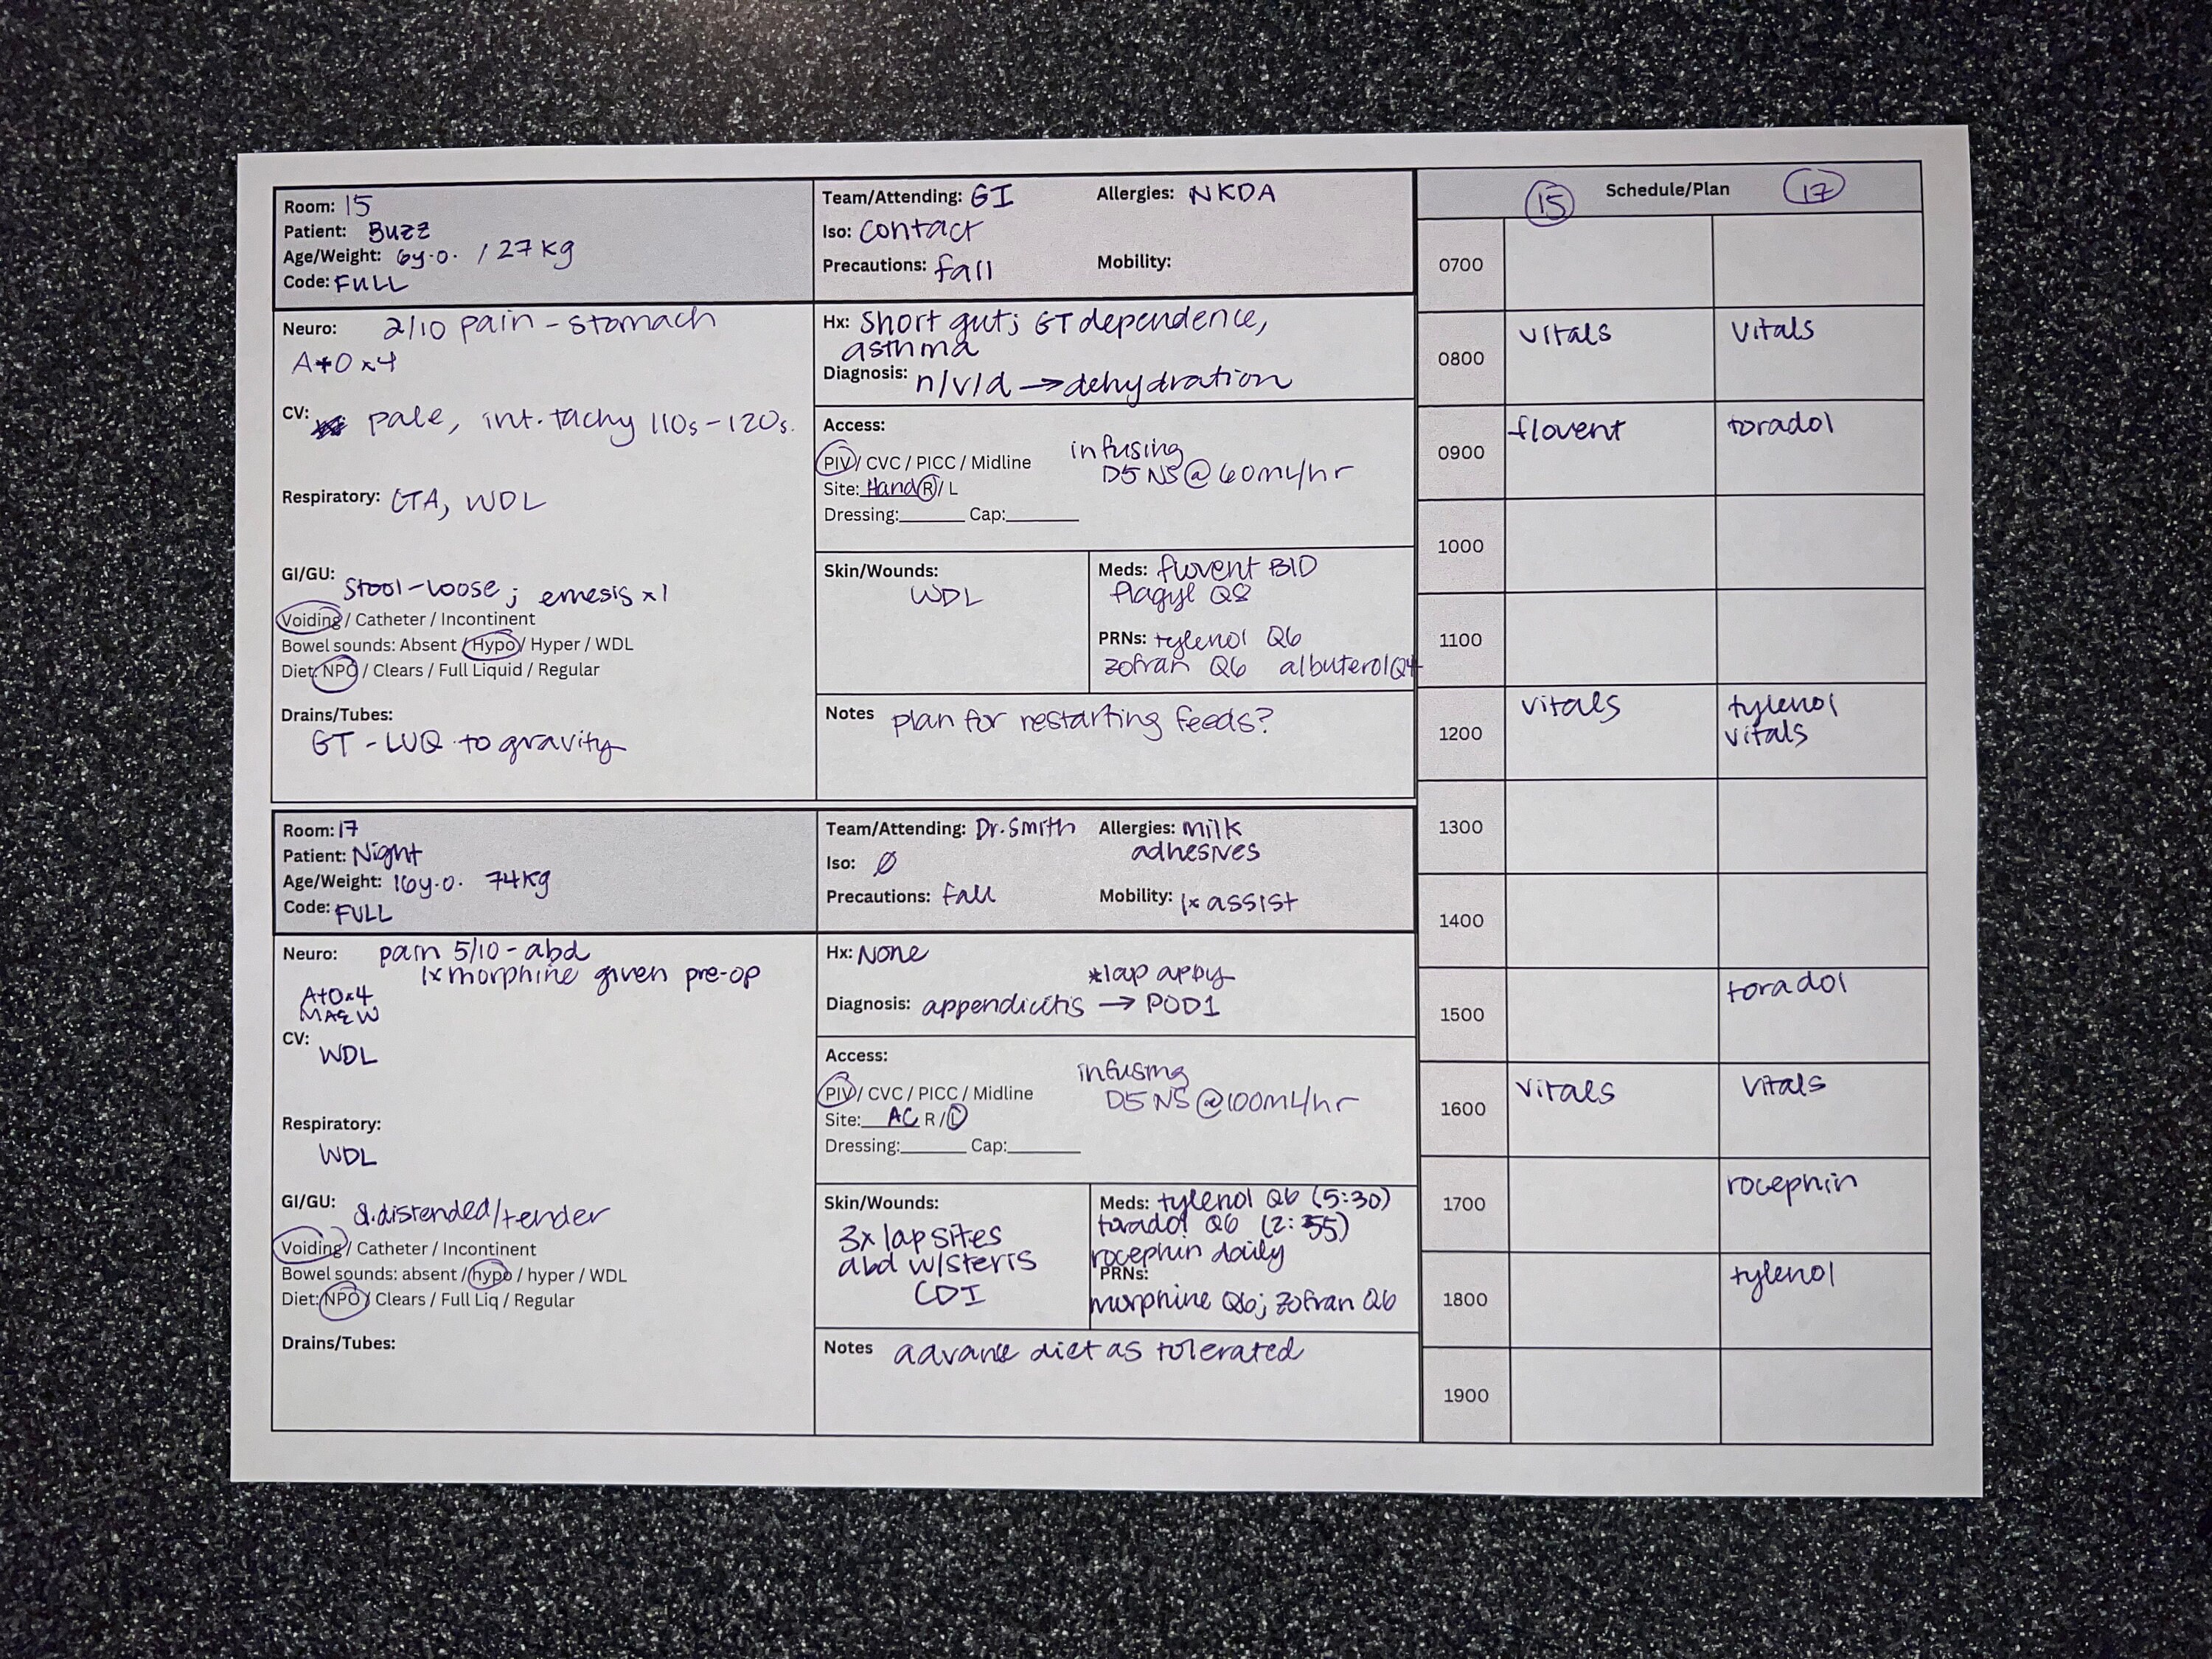 Room: 15
Patient: Buzz
Age/Weight: 6y.o. / 27kg
Code: FULL
Team/Attending: GI Allergies: NKDA
Iso: contact
Precautions: fall Mobility:
Neuro: 2/10 pain - stomach
A+O x4
CV: pale, int. tachy 110s-120s.
Respiratory: CTA, WDL
GI/GU:
Stool-loose; emesis x1
Voiding / Catheter / Incontinent
Bowel sounds: Absent / Hypo / Hyper / WDL
Diet: NPO / Clears / Full Liquid / Regular
Drains/Tubes:
GT - LUQ to gravity
Hx: Short gut; GT dependence,
asthma
Diagnosis: n/v/d → dehydration
Access:
infusing
PIV / CVC / PICC / Midline
D5 NS @ 60mL/hr
Site: Hand R / L
Dressing:______ Cap:______
Skin/Wounds:
WDL
Meds: flovent BID
flagyl Q8
PRNs: tylenol Q6
zofran Q6 albuterol Q4
Notes plan for restarting feeds?
Room: 17
Patient: Night
Age/Weight: 16y.o. 74kg
Code: FULL
Team/Attending: Dr. Smith Allergies: milk
adhesives
Iso: Ø
Precautions: fall Mobility: 1x assist
Neuro: pain 5/10 - abd
1x morphine given pre-op
A+Ox4
MAEW
CV:
WDL
Respiratory:
WDL
GI/GU: distended/tender
Voiding / Catheter / Incontinent
Bowel sounds: absent / hypo / hyper / WDL
Diet: NPO / Clears / Full Liq / Regular
Drains/Tubes:
Hx: None
*lap appy
Diagnosis: appendicitis → POD1
Access:
infusing
PIV / CVC / PICC / Midline
D5 NS @ 100mL/hr
Site: AC R / L
Dressing:______ Cap:______
Skin/Wounds:
3x lap sites
abd w/steris
CDI
Meds: tylenol Q6 (5:30)
toradol Q6 (2:55)
rocephin daily
PRNs:
morphine Q6; zofran Q6
Notes advance diet as tolerated
15 Schedule/Plan 17
0700
0800 vitals vitals
0900 flovent toradol
1000
1100
1200 vitals tylenol
vitals
1300
1400
1500 toradol
1600 vitals vitals
1700 rocephin
1800 tylenol
1900